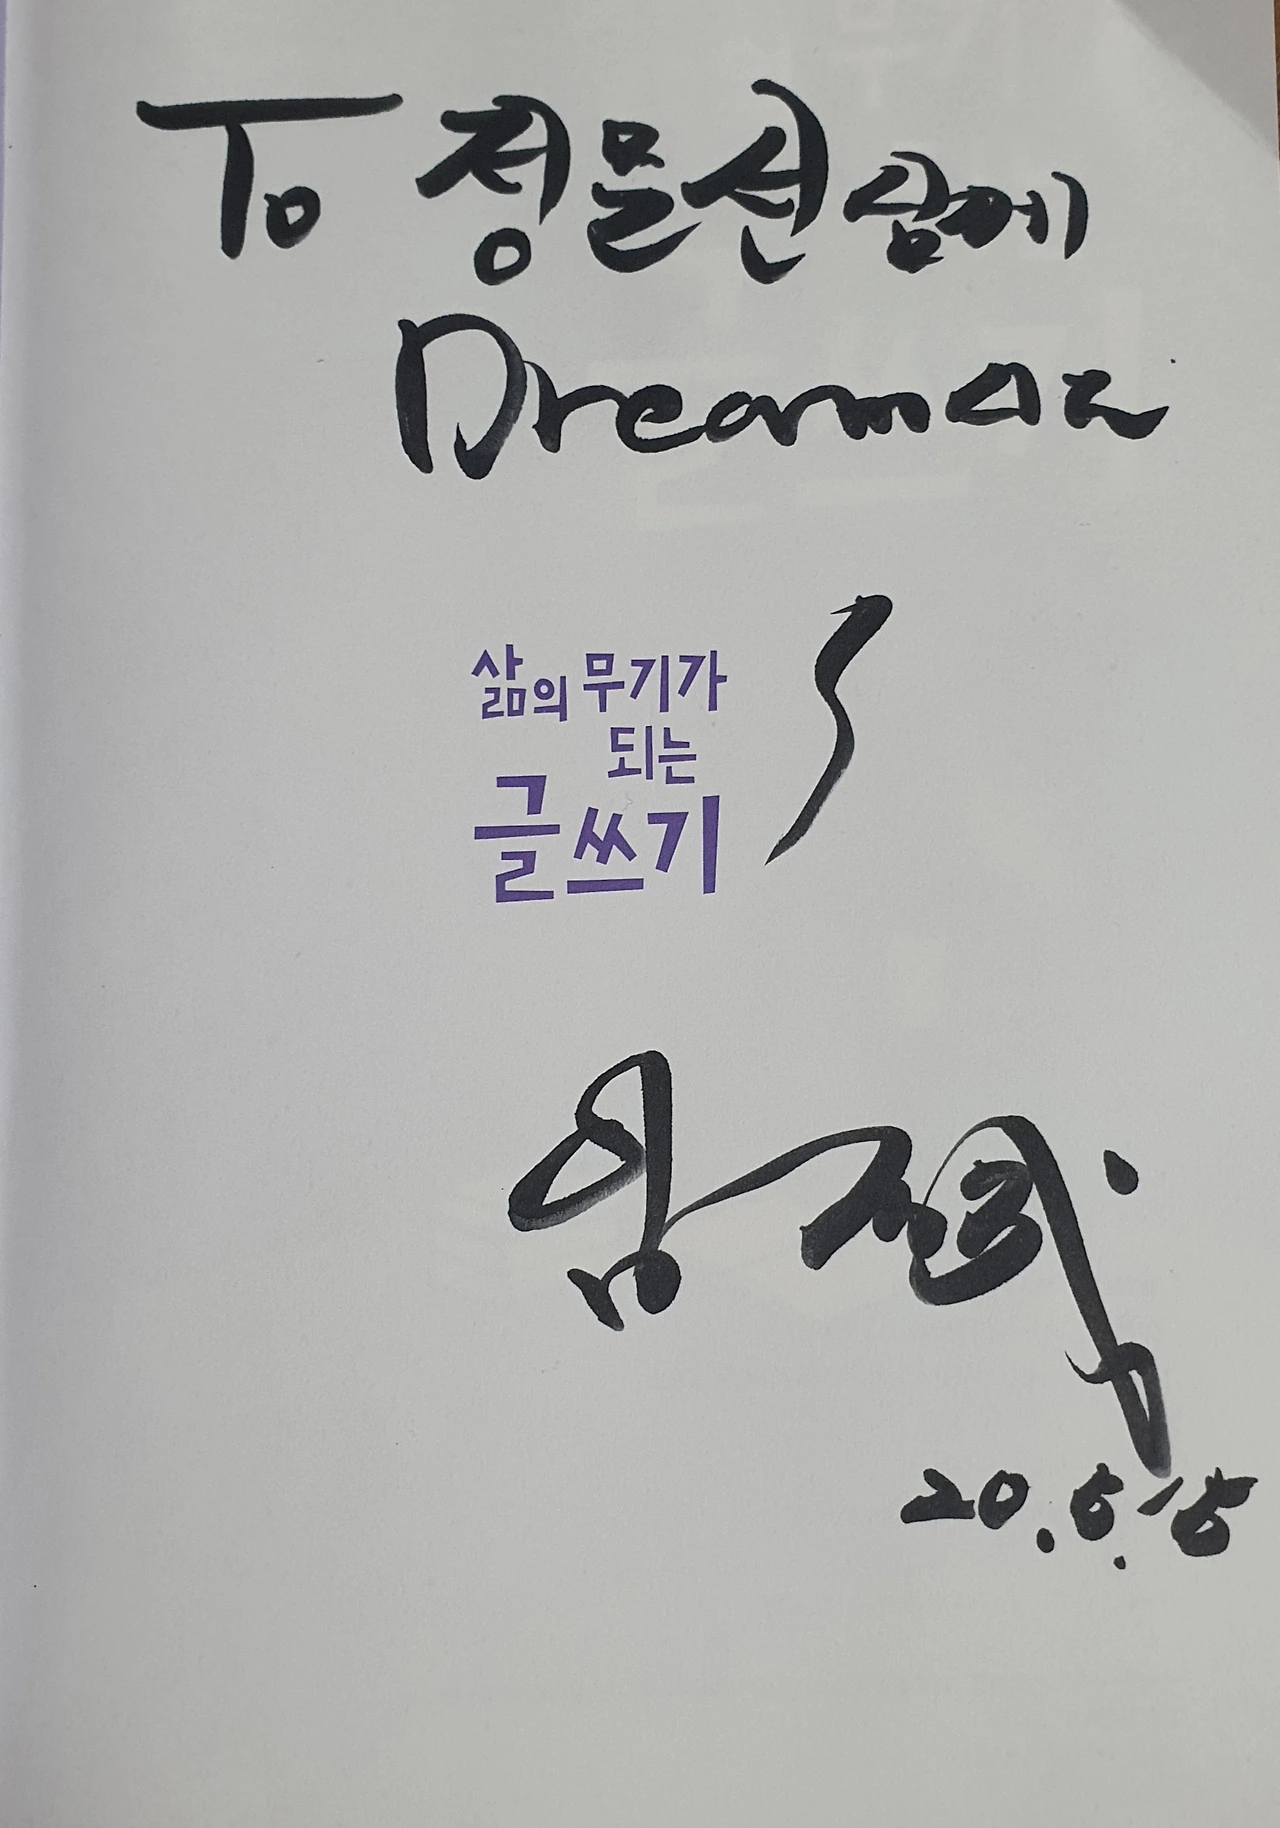 To 정문선 님께
Dream 니다
삶의 무기가
되는
글쓰기
20.5.15